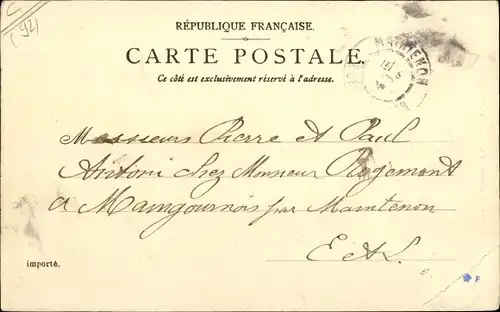 (92)
RÉPUBLIQUE FRANÇAISE.
CARTE POSTALE.
MAINTENON
Ce côté est exclusivement réservé à l'adresse.
Messieurs Pierre et Paul
Antoni chez Monsieur Rogemont
a Maingournois par Maintenon
E et L.
importé.
P